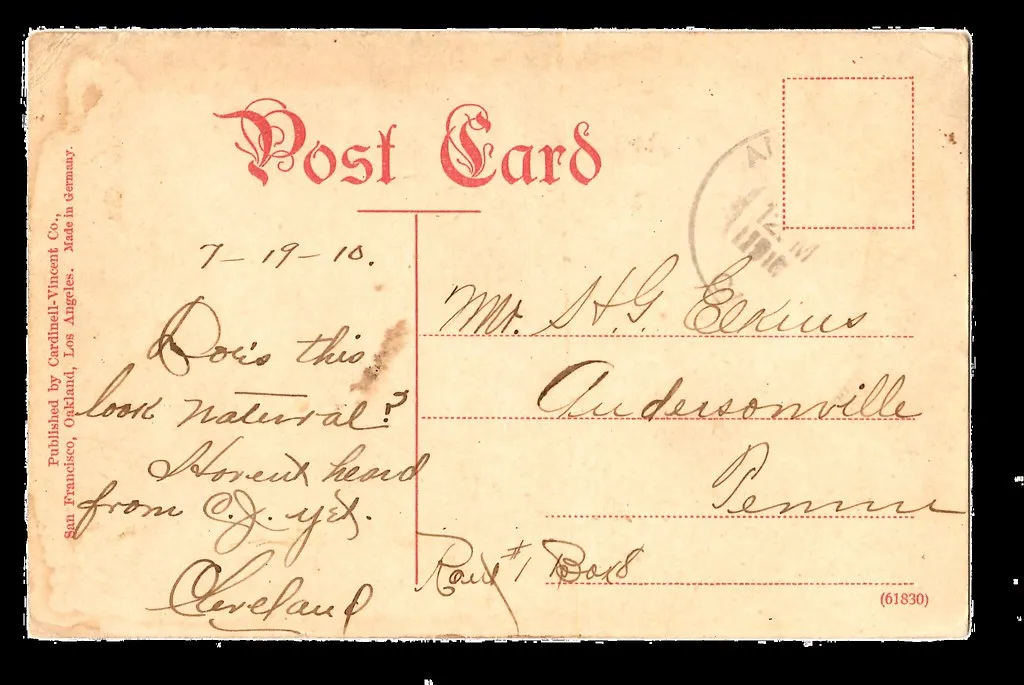 Post Card
Published by Cardinell-Vincent Co.,
San Francisco, Oakland, Los Angeles. Made in Germany.
7-19-10.
Does this
look natural?
Havent heard
from C.J. yet.
Cleveland
Mr. H.G. Elkins
Andersonville
Tennn
Rout #1 Box8
(61830)